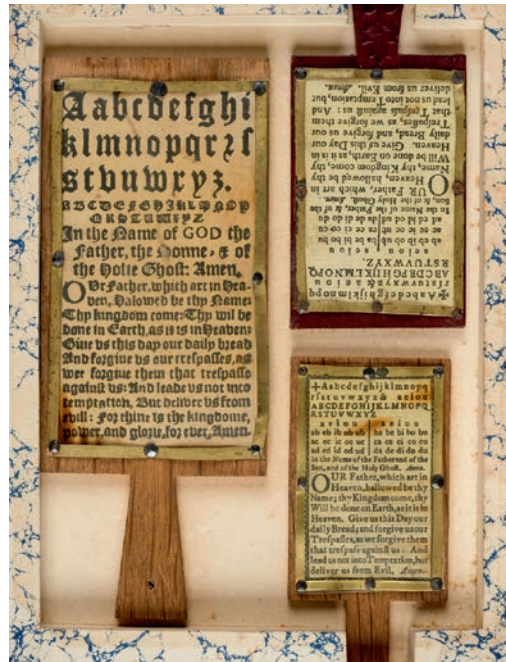 Aabcdefghi
klmnopqrꝛſ
stvuwxyz.
ABCDEFGHIKLMNOP
QRSTUWXYZ
In the Name of GOD the
Father, the Sonne, & of
the Holie Ghost: Amen.
OVr Father, which art in Hea-
ven, Halowed be thy Name:
Thy kingdom come: Thy wil be
done in Earth, as it is in Heaven:
Giue vs this day our daily bread
And forgiue vs our trespasses, as
wee forgiue them that trespasse
against vs: And leade vs not into
temptation, But deliver vs from
evill: For thine is the kingdome,
power, and glorie, for ever, Amen.
✠Aabcdefghijklmnopq
rſstuvwxyz& a e i o u
ABCDEFGHIJKLMNOPQ
RSTUVWXYZ.
a e i o u a e i o u
ab eb ib ob ub ba be bi bo bu
ac ec ic oc uc ca ce ci co cu
ad ed id od ud da de di do du
In the Name of the Father, & of the
Son, & of the Holy Ghoſt. Amen.
OUR Father, which art in
Heaven, hallowed be thy
Name; thy Kingdom come, thy
Will be done on Earth, as it is in
Heaven. Give us this Day our
daily Bread, and forgive us our
Treſpaſſes, as we forgive them
that Treſpaſs againſt us: And
lead us not into Temptation, but
deliver us from Evil. Amen.
+Aabcdefghijklmnopq
rſstuvwxyz& aeiou
ABCDEFGHIJKLMNOPQ
RSTUVWXYZ
a e i o u a e i o u
ab eb ib ob ub ba be bi bo bu
ac ec ic oc uc ca ce ci co cu
ad ed id od ud da de di do du
In the Name of the Father and of the
Son, and of the Holy Ghoſt. Amen.
OUR Father, which art in
Heaven, hallowed be thy
Name; thy Kingdom come, thy
Will be done on Earth, as it is in
Heaven. Give us this Day our
daily Bread; and forgive us our
Treſpaſſes, as we forgive them
that treſpaſs againſt us: And
lead us not into Temptation, but
deliver us from Evil. Amen.